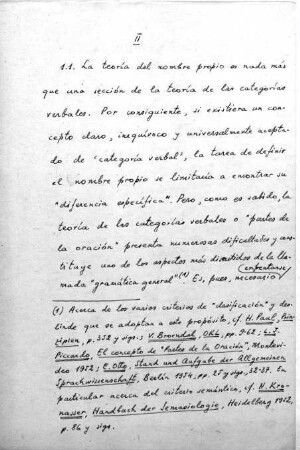 II
1.1. La teoría del nombre propio es nada más
que una sección de la teoría de las categorías
verbales. Por consiguiente, si existiera un con-
cepto claro, inequívoco y universalmente acepta-
do de "categoría verbal", la tarea de definir
el nombre propio se limitaría a encontrar su
"diferencia específica". Pero, como es sabido, la
teoría de las categorías verbales o "partes de
la oración" presenta numerosas dificultades y cons-
tituye uno de los aspectos más discutidos de la lla-
mada "gramática general" (1). Es, pues, necesario
(enfrentarse
(1) Acerca de los varios criterios de "clasificación" y des-
linde que se adoptan a este propósito, cf. H. Paul, Prin-
zipien, p. 352 y sigs.; V. Brøndal, OKL, pp. 9-62; L. J.
Piccardo, El concepto de "Partes de la Oración", Montevi-
deo 1952; E. Otto, Stand und Aufgabe der Allgemeinen
Sprachwissenschaft, Berlin 1954, pp. 25 y sigs., 32-37. En
particular acerca del criterio semántico, cf. H. Kro-
nasser, Handbuch der Semasiologie, Heidelberg 1952,
p. 84 y sigs.